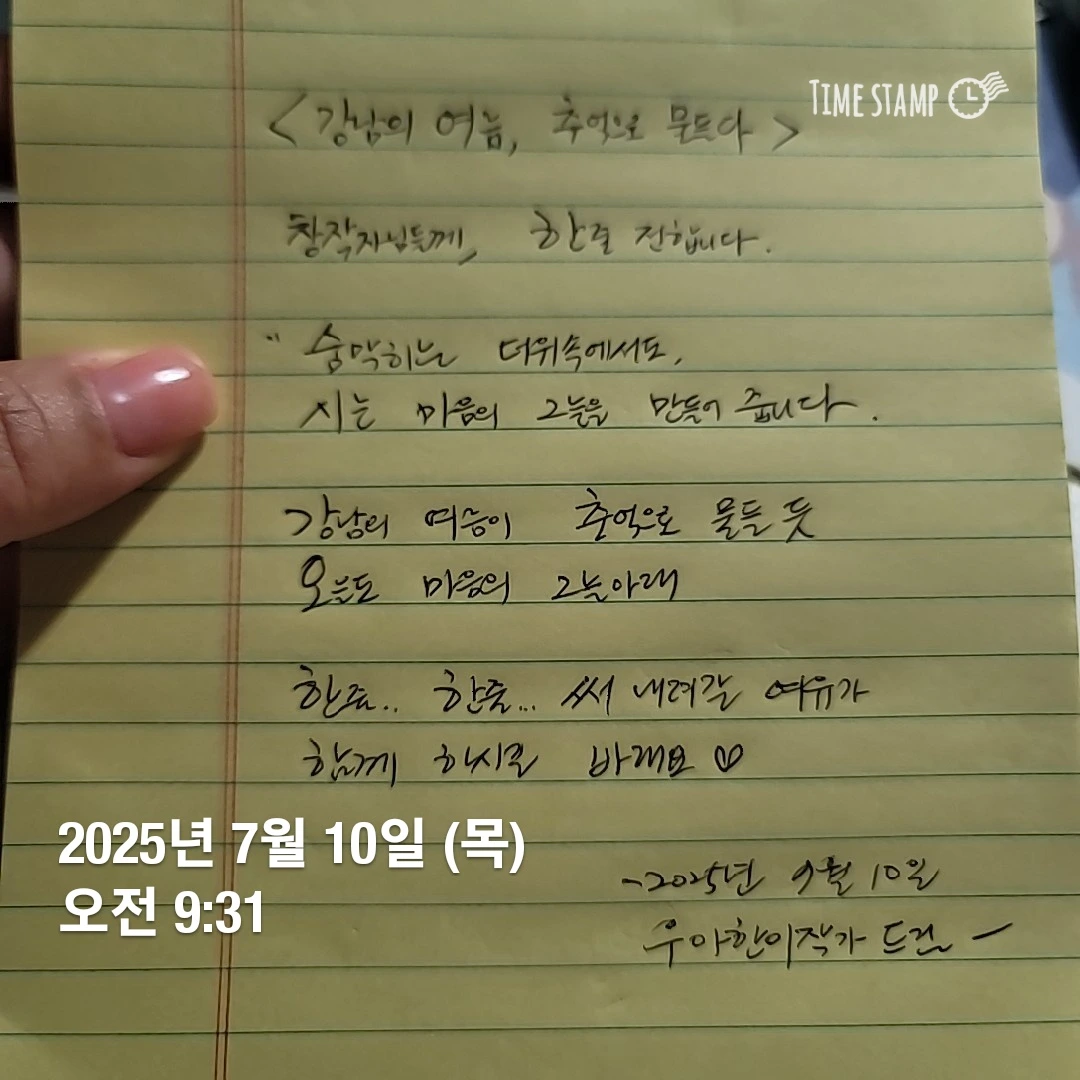 TIME STAMP
<강남의 여름, 추억으로 물드다>
창작자님들께, 한줄 전합니다.
" 숨막히는 더위속에서도,
시는 마음의 그늘을 만들어 줍니다.
강남의 여름이 추억으로 물들 듯
오늘도 마음의 그늘아래
한줄.. 한줄... 써 내려갈 여유가
함께 하시길 바래요 ♡
2025년 7월 10일 (목)
오전 9:31
-2025년 7월 10일
우아한이작가 드림 -